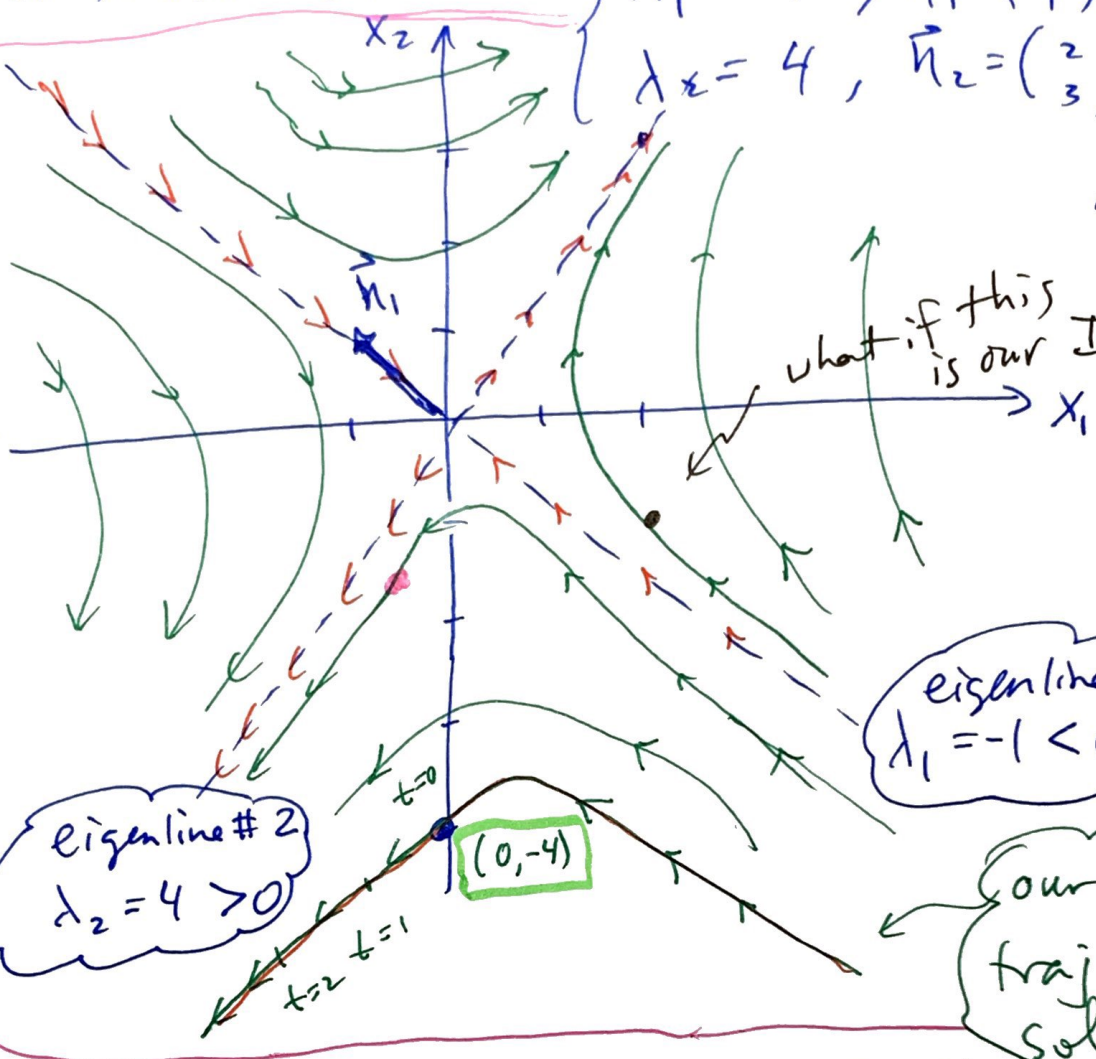 x₂
λ₂ = 4 , η⃗₂ = ( 2
3
η⃗₁
what if this
is our I
x₁
eigenline
λ₁ = -1 <
t=0
(0,-4)
eigenline # 2
λ₂ = 4 > 0
t=1
t=2
our
traj
sol